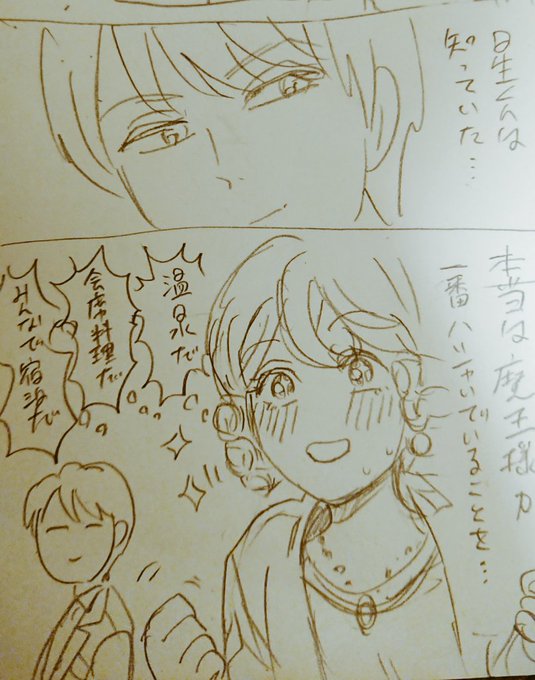 星くんは
知っていた…
本当は魔王様が
一番ハシャいでいることを…
温泉だ
会席料理だ
みんなで宿泊だ